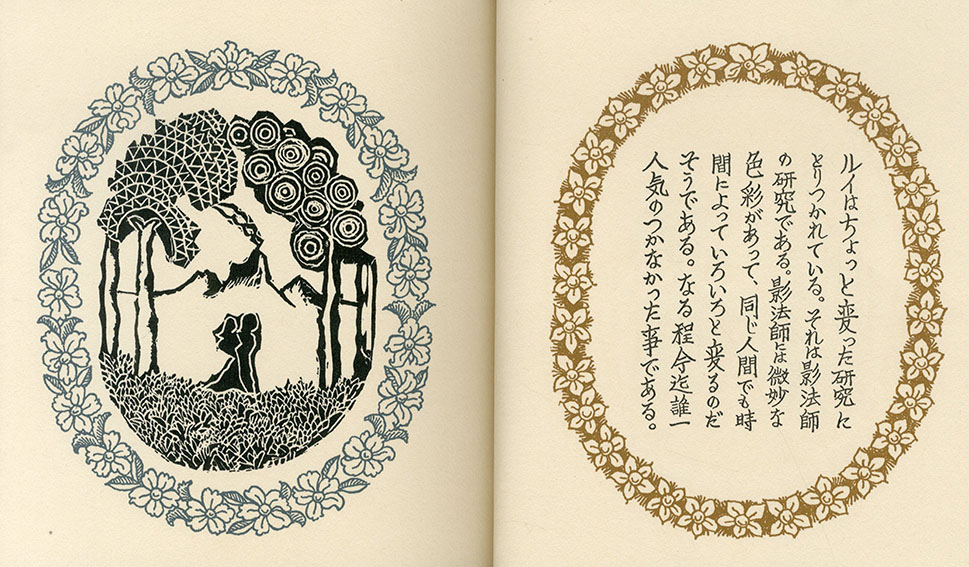 ルイはちょっと変った研究に
とりつかれている。それは影法師
の研究である。影法師には微妙な
色彩があって、同じ人間でも時
間によっていろいろと変るのだ
そうである。なる程今迄誰一
人気のつかなかった事である。